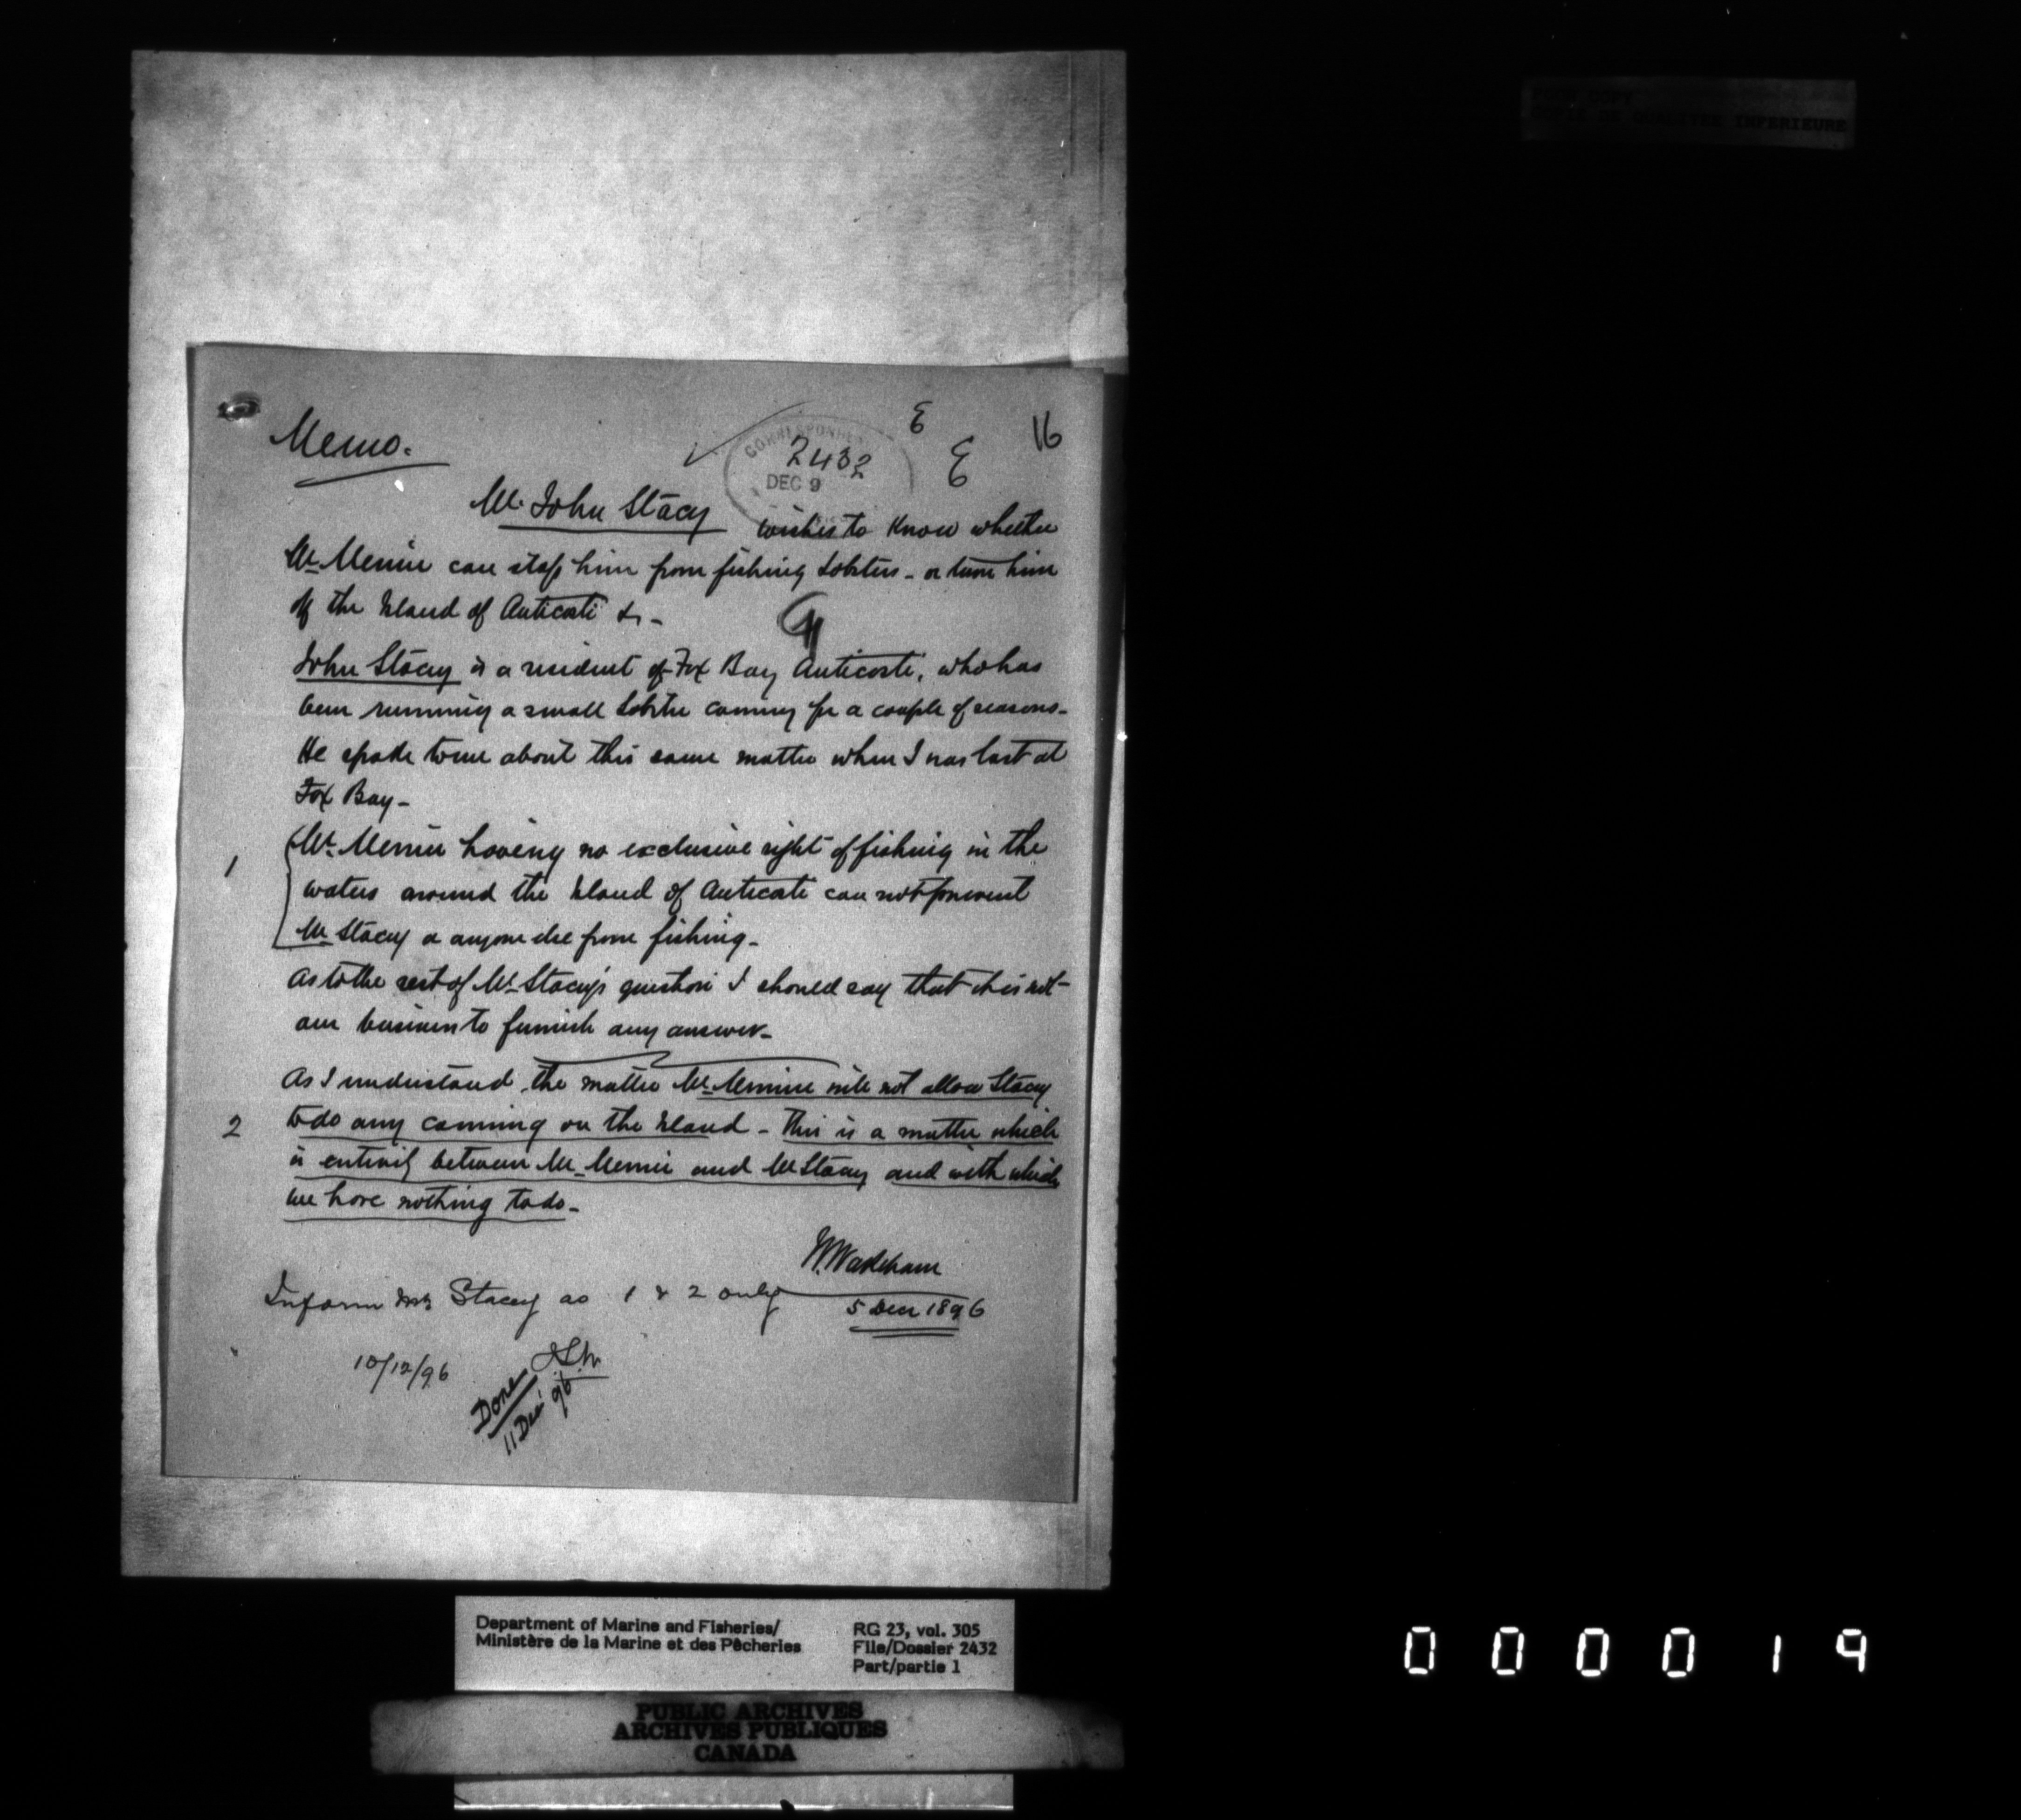 POOR COPY
COPIE DE QUALITEE INFERIEURE
E
16
Memo.
CORRESPONDEN
2432
DEC 9
E
Mr. John Stacy wishes to know whether
Mr Menier can stop him from fishing Lobsters - or turn him
off the Island of Anticosti &c -
John Stacey is a resident of Fox Bay Anticosti, who has
been running a small Lobster canning for a couple of seasons -
He spoke to me about this same matter when I was last at
Fox Bay -
1
Mr. Menier having no exclusive right of fishing in the
waters around the Island of Anticosti can not prevent
Mr Stacey or anyone else from fishing -
As to the rest of Mr Stacey's question I should say that it is not
our business to furnish any answer -
As I understand the matter Mr Menier will not allow Stacey
2
to do any canning on the Island - This is a matter which
is entirely between Mr Menier and Mr Stacey and with which
we have nothing to do -
W. Wakeham
5 Decr 1896
Inform Mr Stacey as 1 & 2 only
10/12/96
Done
11 Dec' 96
Department of Marine and Fisheries/
Ministère de la Marine et des Pêcheries
RG 23, vol. 305
File/Dossier 2432
Part/partie 1
PUBLIC ARCHIVES
ARCHIVES PUBLIQUES
CANADA
000019